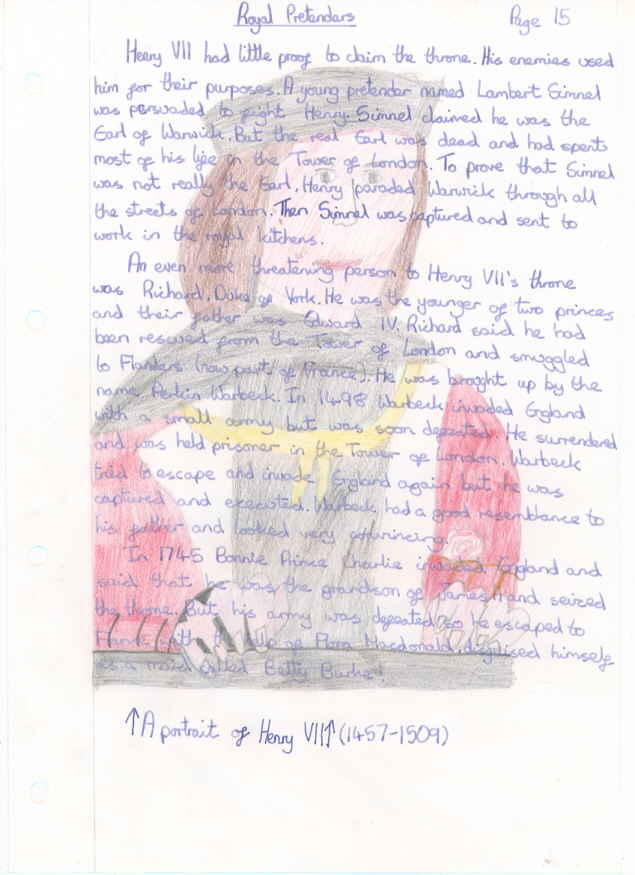 Royal Pretenders
Page 15
Henry VII had little proof to claim the throne. His enemies used
him for their purposes. A young pretender named Lambert Simnel
was persuaded to fight Henry. Simnel claimed he was the
Earl of Warwick. But the real Earl was dead and had spent
most of his life in the Tower of London. To prove that Simnel
was not really the Earl, Henry paraded Warwick through all
the streets of London. Then Simnel was captured and sent to
work in the royal kitchens.
An even more threatening person to Henry VII's throne
was Richard, Duke of York. He was the younger of two princes
and their father was Edward IV. Richard said he had
been rescued from the Tower of London and smuggled
to Flanders (now part of France). He was brought up by the
name Perkin Warbeck. In 1498 Warbeck invaded England
with a small army but was soon defeated. He surrendered
and was held prisoner in the Tower of London. Warbeck
tried to escape and invade England again but he was
captured and executed. Warbeck had a good resemblance to
his father and looked very convincing.
In 1745 Bonnie Prince Charlie invaded England and
said that he was the grandson of James II and seized
the throne. But his army was defeated so he escaped to
France with the help of Flora Macdonald, disguised himself
as a maid called Betty Burke!
↑A portrait of Henry VII↑ (1457-1509)